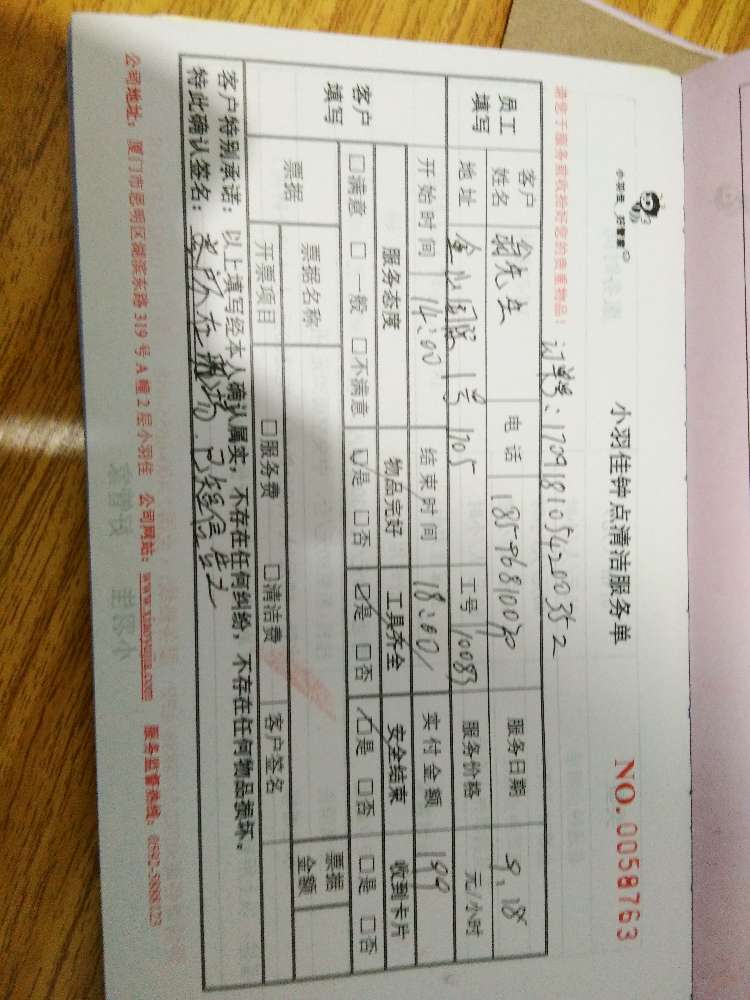 小羽佳 好管家
小羽佳钟点清洁服务单
NO. 0058763
请您于服务前收捡好您的贵重物品!
订单号:1709181054200352
员工填写 客户姓名 翁先生 电话 18596810070 服务日期 9.18
地址 金山国际 1号 1705 工号 10083 服务价格 元/小时
客户填写 开始时间 14:00 结束时间 18:00 实付金额 199
服务态度 物品完好 工具齐全 安全结束 收到卡片
□满意 □一般 □不满意 ☑是 □否 ☑是 □否 ☑是 □否 □是 □否
票据 票据名称 票据金额
开票项目 □服务费 □清洁费 客户签名
客户特别承诺:以上填写经本人确认属实,不存在任何纠纷,不存在任何物品损坏。
特此确认签名: 不在现场.已短信告之
公司地址:厦门市思明区湖滨东路319号A幢2层小羽佳 公司网站:www.xiaoyujia.com 服务监督热线:0592-5888123